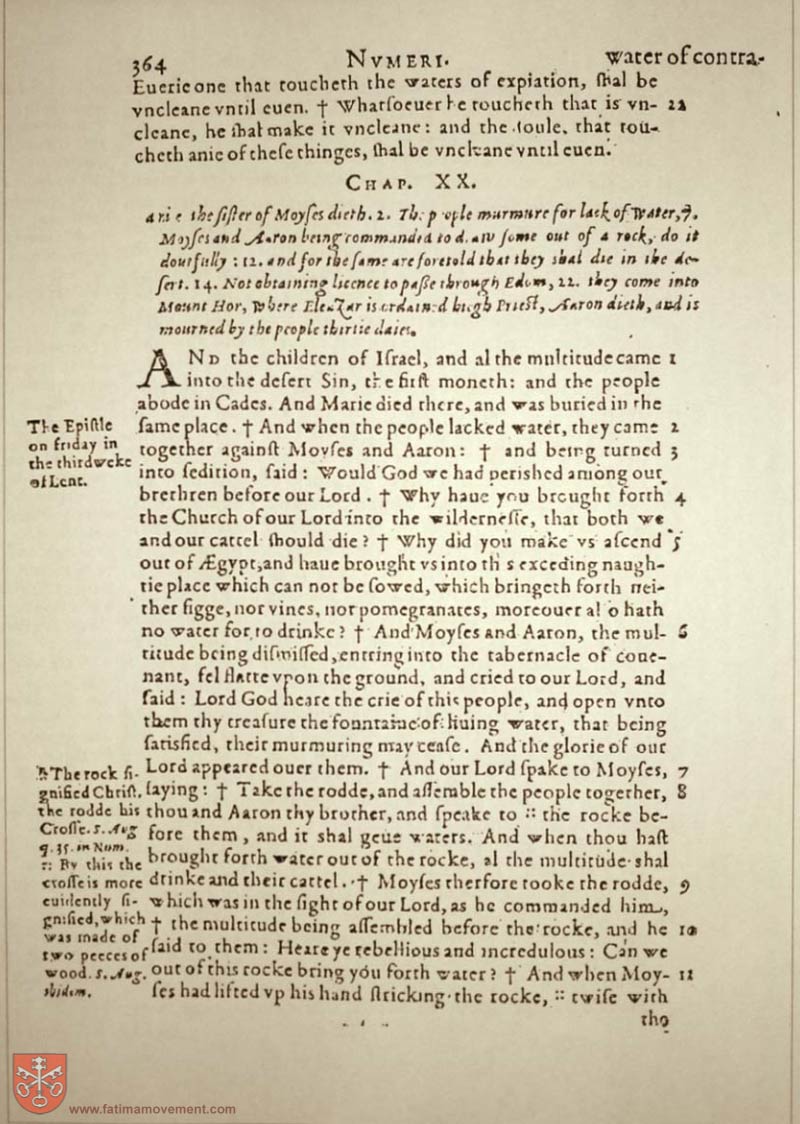 364 NVMERI. water of contra-
Euerie one that toucheth the waters of expiation, ſhal be
vncleane vntil euen. † Whatſoeuer he toucheth that is vn- 22
cleane, he ſhal make it vncleane: and the ſoule, that tou-
cheth anie of theſe thinges, ſhal be vncleane vntil euen.
CHAP. XX.
the ſiſter of Moyſes dieth. 2. The people murmure for lack of water, 7.
Moyſes and Aaron being commanded to draw ſome out of a rock, do it
doutfully: 12. and for the ſame are foretold that they shal die in the de-
ſert. 14. Not obtaining licence to paſſe through Edom, 22. they come into
Mount Hor, where Eleazar is ordained high Prieſt, Aaron dieth, and is
mourned by the people thirtie daies.
AND the children of Iſrael, and al the multitude came 1
into the deſert Sin, the firſt moneth: and the people
abode in Cades. And Marie died there, and was buried in the
ſame place. † And when the people lacked water, they came 2
together againſt Moyſes and Aaron: † and being turned 3
into ſedition, ſaid: Would God we had perished among our
brethren before our Lord. † Why haue you brought forth 4
the Church of our Lord into the wilderneſſe, that both we
and our cattel ſhould die? † Why did you make vs aſcend 5
out of Ægypt, and haue brought vs into this exceding naugh-
tie place which can not be ſowed, which bringeth forth nei-
ther figge, nor vines, nor pomegranates, moreouer alſo hath
no water for to drinke? † And Moyſes and Aaron, the mul- 6
titude being diſmiſſed, entring into the tabernacle of coue-
nant, fel flatte vpon the ground, and cried to our Lord, and
ſaid: Lord God heare the crie of this people, and open vnto
them thy treaſure the fountaine of liuing water, that being
ſatisfied, their murmuring may ceaſe. And the glorie of our
Lord appeared ouer them. † And our Lord ſpake to Moyſes, 7
ſaying: † Take the rodde, and aſſemble the people together, 8
thou and Aaron thy brother, and ſpeake to :: the rocke be-
fore them, and it shal geue waters. And when thou haſt
brought forth water out of the rocke, al the multitude shal
drinke and their cattel. † Moyſes therfore tooke the rodde, 9
which was in the ſight of our Lord, as he commanded him,
† the multitude being aſſembled before the rocke, and he 10
ſaid to them: Heare ye rebellious and incredulous: Can we
out of this rocke bring you forth water? † And when Moy- 11
ſes had lifted vp his hand ſtricking the rocke, :: twiſe with
the
The Epiſtle
on friday in
the third weke
of Lent.
The rock ſi-
gnified Chriſt,
the rodde his
Croſſe. S. Aug
q. 35. in Num.
:: By this the
croſſe is more
euidently ſi-
gnified, which
was made of
two peeces of
wood. S. Aug.
ibidem.
www.fatimamovement.com